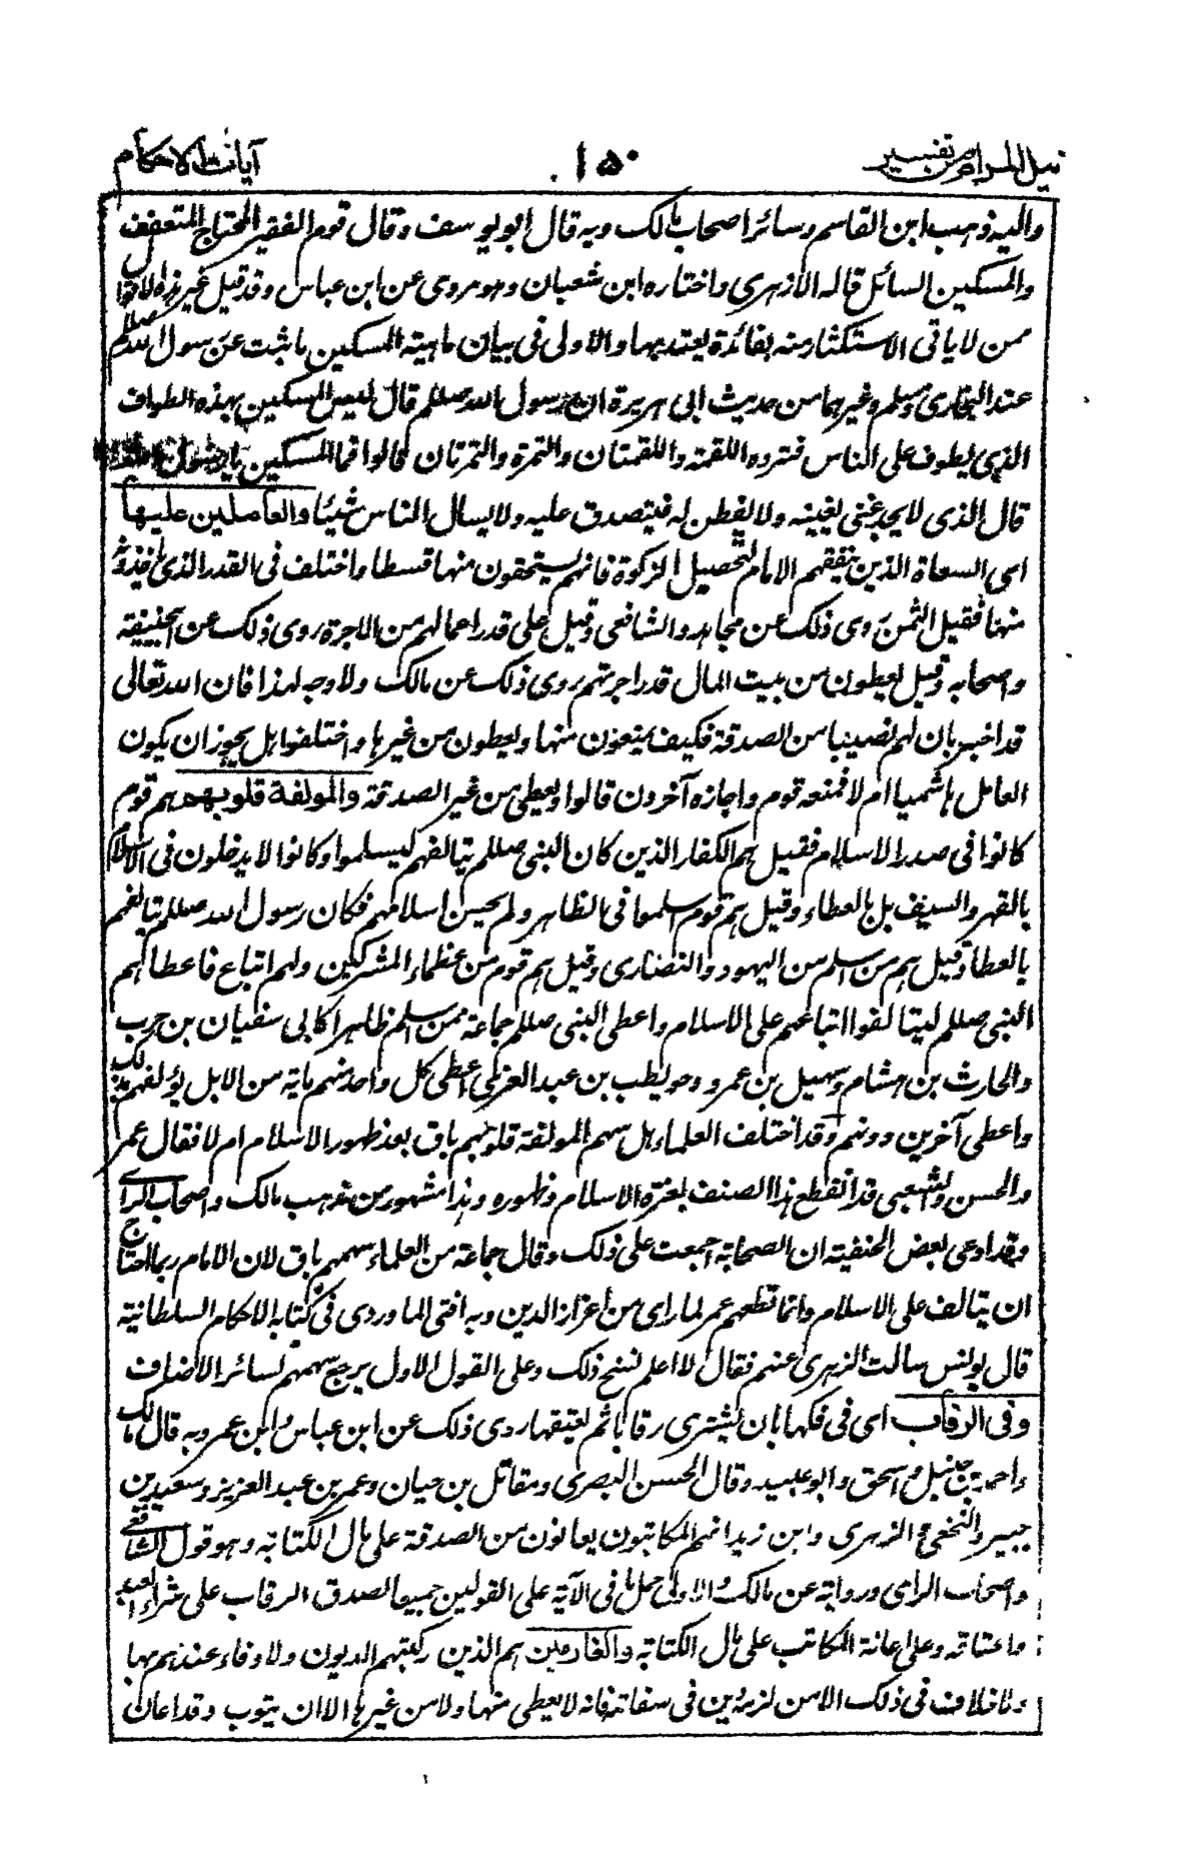 نيل المرام من تفسير ١٥٠ آيات الاحكام
واليه ذهب ابن القاسم وسائر اصحاب مالك وبه قال ابو يوسف وقال قوم الفقير المحتاج المتعفف
والمسكين السائل قاله الازهرى واختاره ابن شعبان وهو مروى عن ابن عباس وقد قيل غير هذا
ممن لا ياتى الاستكثار منه بفائدة يعتد بها والاولى فى بيان ماهية المسكين ما ثبت عن رسول الله صللم
عند البخارى ومسلم وغيرهما من حديث ابى هريرة ان رسول الله صللم قال ليس المسكين بهذه الطواف
الذى يطوف على الناس فترده اللقمة واللقمتان والتمرة والتمرتان قالوا فما المسكين يا رسول الله
قال الذى لا يجد غنى يغنيه ولا يفطن له فيتصدق عليه ولا يسال الناس شيئا والعاملين عليها
اى السعاة الذين يبعثهم الامام لتحصيل الزكوة فانهم يستحقون منها قسطا واختلف فى القدر الذى ياخذونه
منها فقيل الثمن روى ذلك عن مجاهد والشافعى وقيل على قدر اعمالهم من الاجرة روى ذلك عن ابيحنيفة
واصحابه وقيل يعطون من بيت المال قدر اجرتهم روى ذلك عن مالك ولا وجه لهذا فان الله تعالى
قد اخبر بان لهم نصيبا من الصدقة فكيف يمنعون منها ويعطون من غيرها واختلفوا هل يجوز ان يكون
العامل هاشميا ام لا فمنعه قوم واجازه آخرون قالوا ويعطى من غير الصدقة والمولفة قلوبهم هم قوم
كانوا فى صدر الاسلام فقيل هم الكفار الذين كان النبى صللم يتالفهم ليسلموا وكانوا لا يدخلون فى الاسلام
بالقهر والسيف بل بالعطاء وقيل هم قوم اسلموا فى الظاهر ولم يحسن اسلامهم فكان رسول الله صللم يتالفهم
بالعطا وقيل هم من اسلم من اليهود والنصارى وقيل هم قوم من عظماء المشركين ولهم اتباع فاعطاهم
النبى صللم ليتالفوا اتباعهم على الاسلام واعطى النبى صللم جماعة ممن اسلم ظاهرا كابى سفيان بن حرب
والحارث بن هشام وسهيل بن عمرو وحويطب بن عبد العزى اعطى كل واحد منهم ماية من الابل يؤلفهم بذلك
واعطى آخرين دونهم وقد اختلف العلماء هل سهم المولفة قلوبهم باق بعد ظهور الاسلام ام لا فقال عمر
والحسن والشعبى قد انقطع هذا الصنف بعزة الاسلام وظهوره وهذا مشهور من مذهب مالك واصحاب الراى
وقد ادعى بعض الحنفية ان الصحابة اجمعت على ذلك وقال جماعة من العلماء سهمهم باق لان الامام ربما احتاج
ان يتالف على الاسلام وانما قطعهم عمر لما راى من اعزاز الدين وبه افتى الماوردى فى كتابه الاحكام السلطانية
قال يونس سالت الزهرى عنهم فقال لا اعلم نسخ ذلك وعلى القول الاول يرجع سهمهم لسائر الاصناف
وفى الرقاب اى فى فكها بان يشترى رقابا ثم يعتقها روى ذلك عن ابن عباس وابن عمر وبه قال مالك
واحمد بن حنبل واسحق وابو عبيد وقال الحسن البصرى ومقاتل بن حيان وعمر بن عبد العزيز وسعيد بن
جبير والنخعى والزهرى وابن زيد انهم المكاتبون يعانون من الصدقة على مال الكتابة وهو قول الشافعى
واصحاب الراى ورواية عن مالك والاولى حمل ما فى الآية على القولين جميعا لصدق الرقاب على شراء العبد
واعتاقه وعلى اعانة المكاتب على مال الكتابة والغارمين هم الذين ركبتهم الديون ولا وفاء عندهم بها
ولا خلاف فى ذلك الا من لزمه دين فى سفاهة فانه لا يعطى منها ولا من غيرها الا ان يتوب وقد اعان